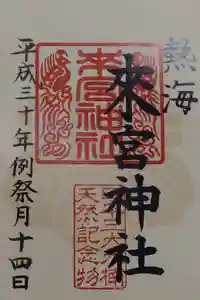 熱海
來宮神社
平成三十年例祭月十四日
来宮神社
天然記念物